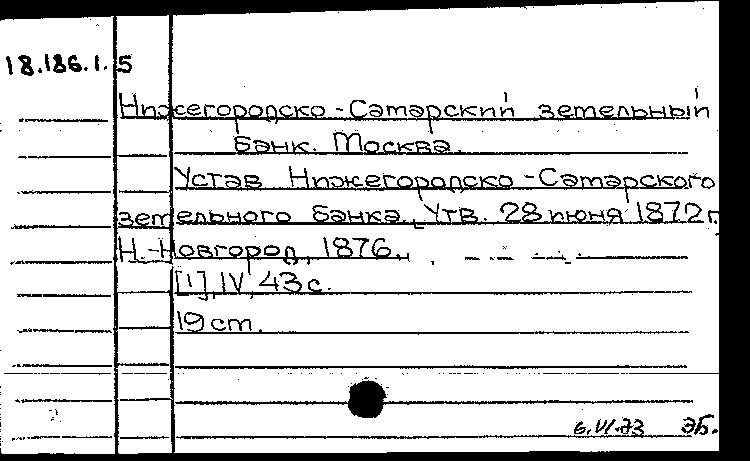 18.186.1.5
Нижегородско-Самарский земельный
банк. Москва.
Устав Нижегородско-Самарского
земельного банка. Утв. 28 июня 1872 г.
Н.-Новгород, 1876.
[1], IV, 43 с.
19 cm.
6.VI.73 ЭБ.